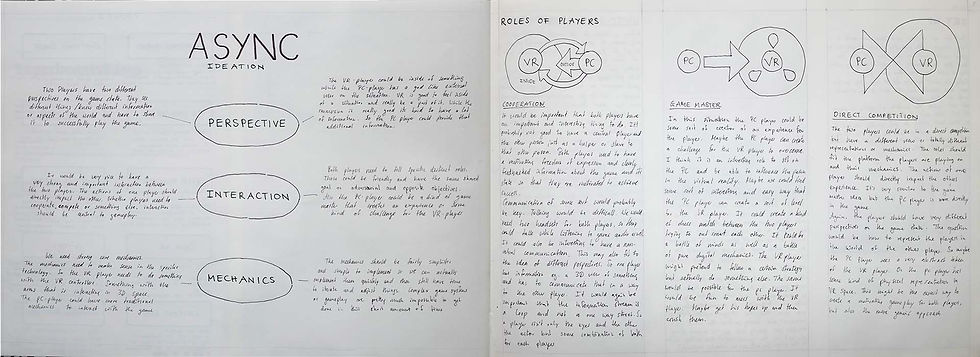 ASYNC
IDEATION
Two Players have two different
perspectives on the game state. They see
different things/know different information
or aspects of the world and have to share
it to successfully play the game.
PERSPECTIVE
The VR-player could be inside of something
while the PC-player has a god like external
view on the situation. VR is good to feel inside
of a situation and really be a part of it. While the
immersion is really good it's hard to have a lot
of information. So the PC player could provide that
additional information.
It would be very nice to have a
very strong and important interaction between
the two players. The actions of one player should
directly impact the other. Whether players need to
cooperate, compete or something else, interaction
should be central to gameplay.
INTERACTION
Both players need to fill specific distinct roles.
These could be friendly and have the same shared
goal or adversarial and opposite objectives.
Also the PC player could be a kind of game
master that creates an experience or some
kind of challenge for the VR player
We need strong core mechanics.
The mechanics need to make sense in the specific
technology. So the VR player needs to do something
with the VR controllers. Something with the
arms that is interacting in 3D space.
The PC-player could have more traditional
mechanics to interact with the game.
MECHANICS
The mechanics should be fairly simple
and simple to implement so we can actually
implement them quickly and then still have time
to iterate and adjust things. Complex game systems
or gameplay are pretty much impossible to get
done in this short amount of time
ROLES OF PLAYERS
VR
INSIDE
OUTSIDE
PC
COOPERATION
It would be important that both players have
an important and interesting thing to do. It'd
probably not good to have a central player and
the other person just as a helper or slave to
that other person. Both players need to have
a motivating freedom of expression and clearly
information about the game and its
state so that they are motivated to achieve
Communication of some sort would probably
be key. Talking would be difficult. We would
need two headsets for both players, so they
could talk while listening to game audio as well.
It could also be interesting to have a non-
verbal communication. This may also tie to
the idea of different perspectives. So one player
has information e.g. 3D view of something
and has to communicate that in a way
to the other player. It would again be
important that the information stream is
a loop and not a one way street. So
a player isn't only the eyes and the other
the actor but some combination of both
for each player
PC
VR
GAME MASTER
In this situation the PC player could be
some sort of creator of an experience for
the player. Maybe the PC player can create
a challenge for the VR player to overcome.
I think it's an interesting role to sit on
the PC and be able to influence the person
in the virtual reality. Maybe we could find
some sort of interesting and easy way that
the PC player can create a sort of level
for the VR player. It could create a kind
of chess match between the two players
trying to out smart each other. It could be
a battle of minds as well as a battle
of pure digital mechanics. The VR player
might pretend to follow a certain strategy
but actually do something else. The same
would be possible for the PC player. It
would be fun to mess with the VR
player. Maybe get his hopes up and then
crush them.
PC
VR
DIRECT COMPETITION
The two players could be in a direct competition
but have a different view or totally different
representations or mechanics. The roles should
fit the platform the players are playing on
and their mechanics. The actions of one
player should directly impact the others
experience. It's very similar to the game
master idea but the PC player is more directly
in the game.
Again, the players should have very different
perspectives on the game state. The question
would be how to represent the player in
the world of the other player. So maybe
the PC player sees a very abstract idea
of the VR player. Or the PC player has
some kind of physical representation in
VR Space. This might be the easiest way to
create a motivating gameplay for both players,
but also the more generic approach